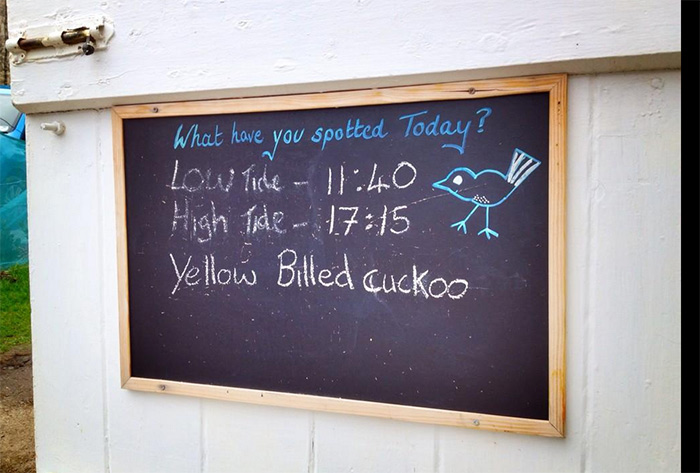 What have you spotted Today?
Low Tide - 11:40
High Tide - 17:15
Yellow Billed cuckoo